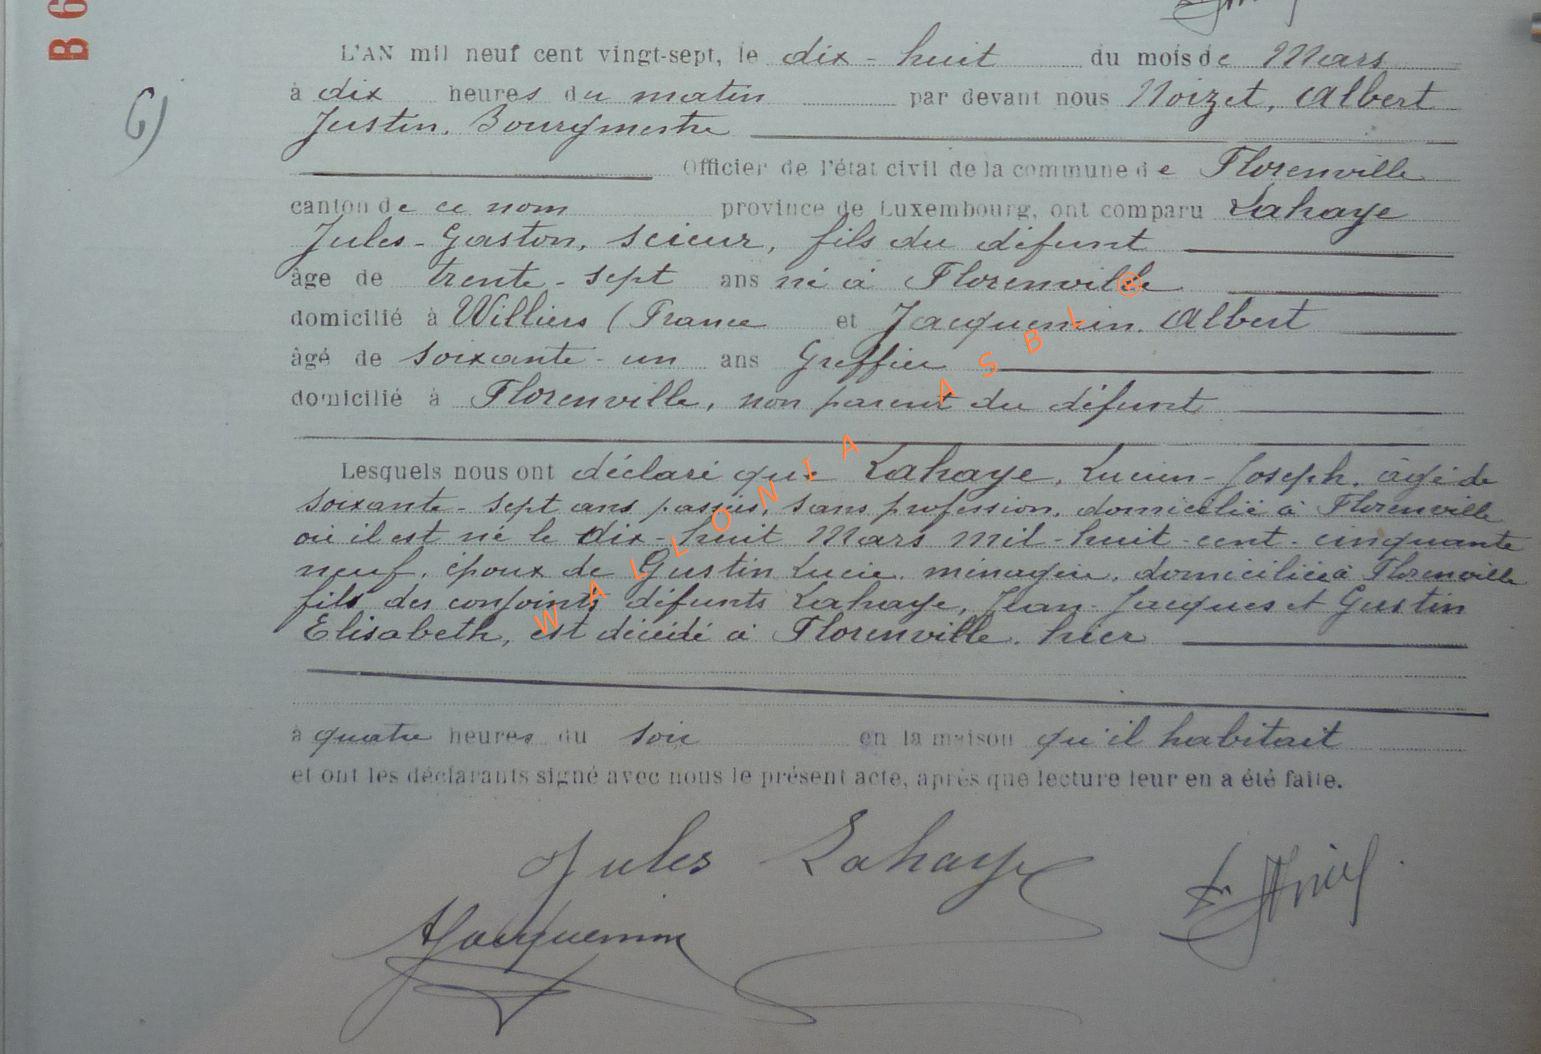 B 6
6)
L'AN mil neuf cent vingt-sept, le dix-huit du mois de Mars
à dix heures du matin par devant nous Noizet, Albert
Justin, Bourgmestre
Officier de l'état civil de la commune de Florenville
canton de ce nom province de Luxembourg, ont comparu Lahaye
Jules-Gaston, scieur, fils du défunt
âge de trente-sept ans né à Florenville
domicilié à Williers (France et Jacquemin, Albert
âgé de soixante-un ans Greffier
domicilié à Florenville, non parent du défunt
Lesquels nous ont déclaré que Lahaye, Lucien-Joseph, âgé de
soixante-sept ans passés, sans profession, domicilié à Florenville
où il est né le dix-huit Mars mil-huit-cent-cinquante
neuf, époux de Gustin Lucie, ménagère, domiciliée à Florenville
fils des conjoints défunts Lahaye, Jean-Jacques et Gustin
Elisabeth, est décédé à Florenville, hier
à quatre heures du soir en la maison qu'il habitait
et ont les déclarants signé avec nous le présent acte, après que lecture leur en a été faite.
Jules Lahaye
AJacquemin
WALLONIA ASBL ©